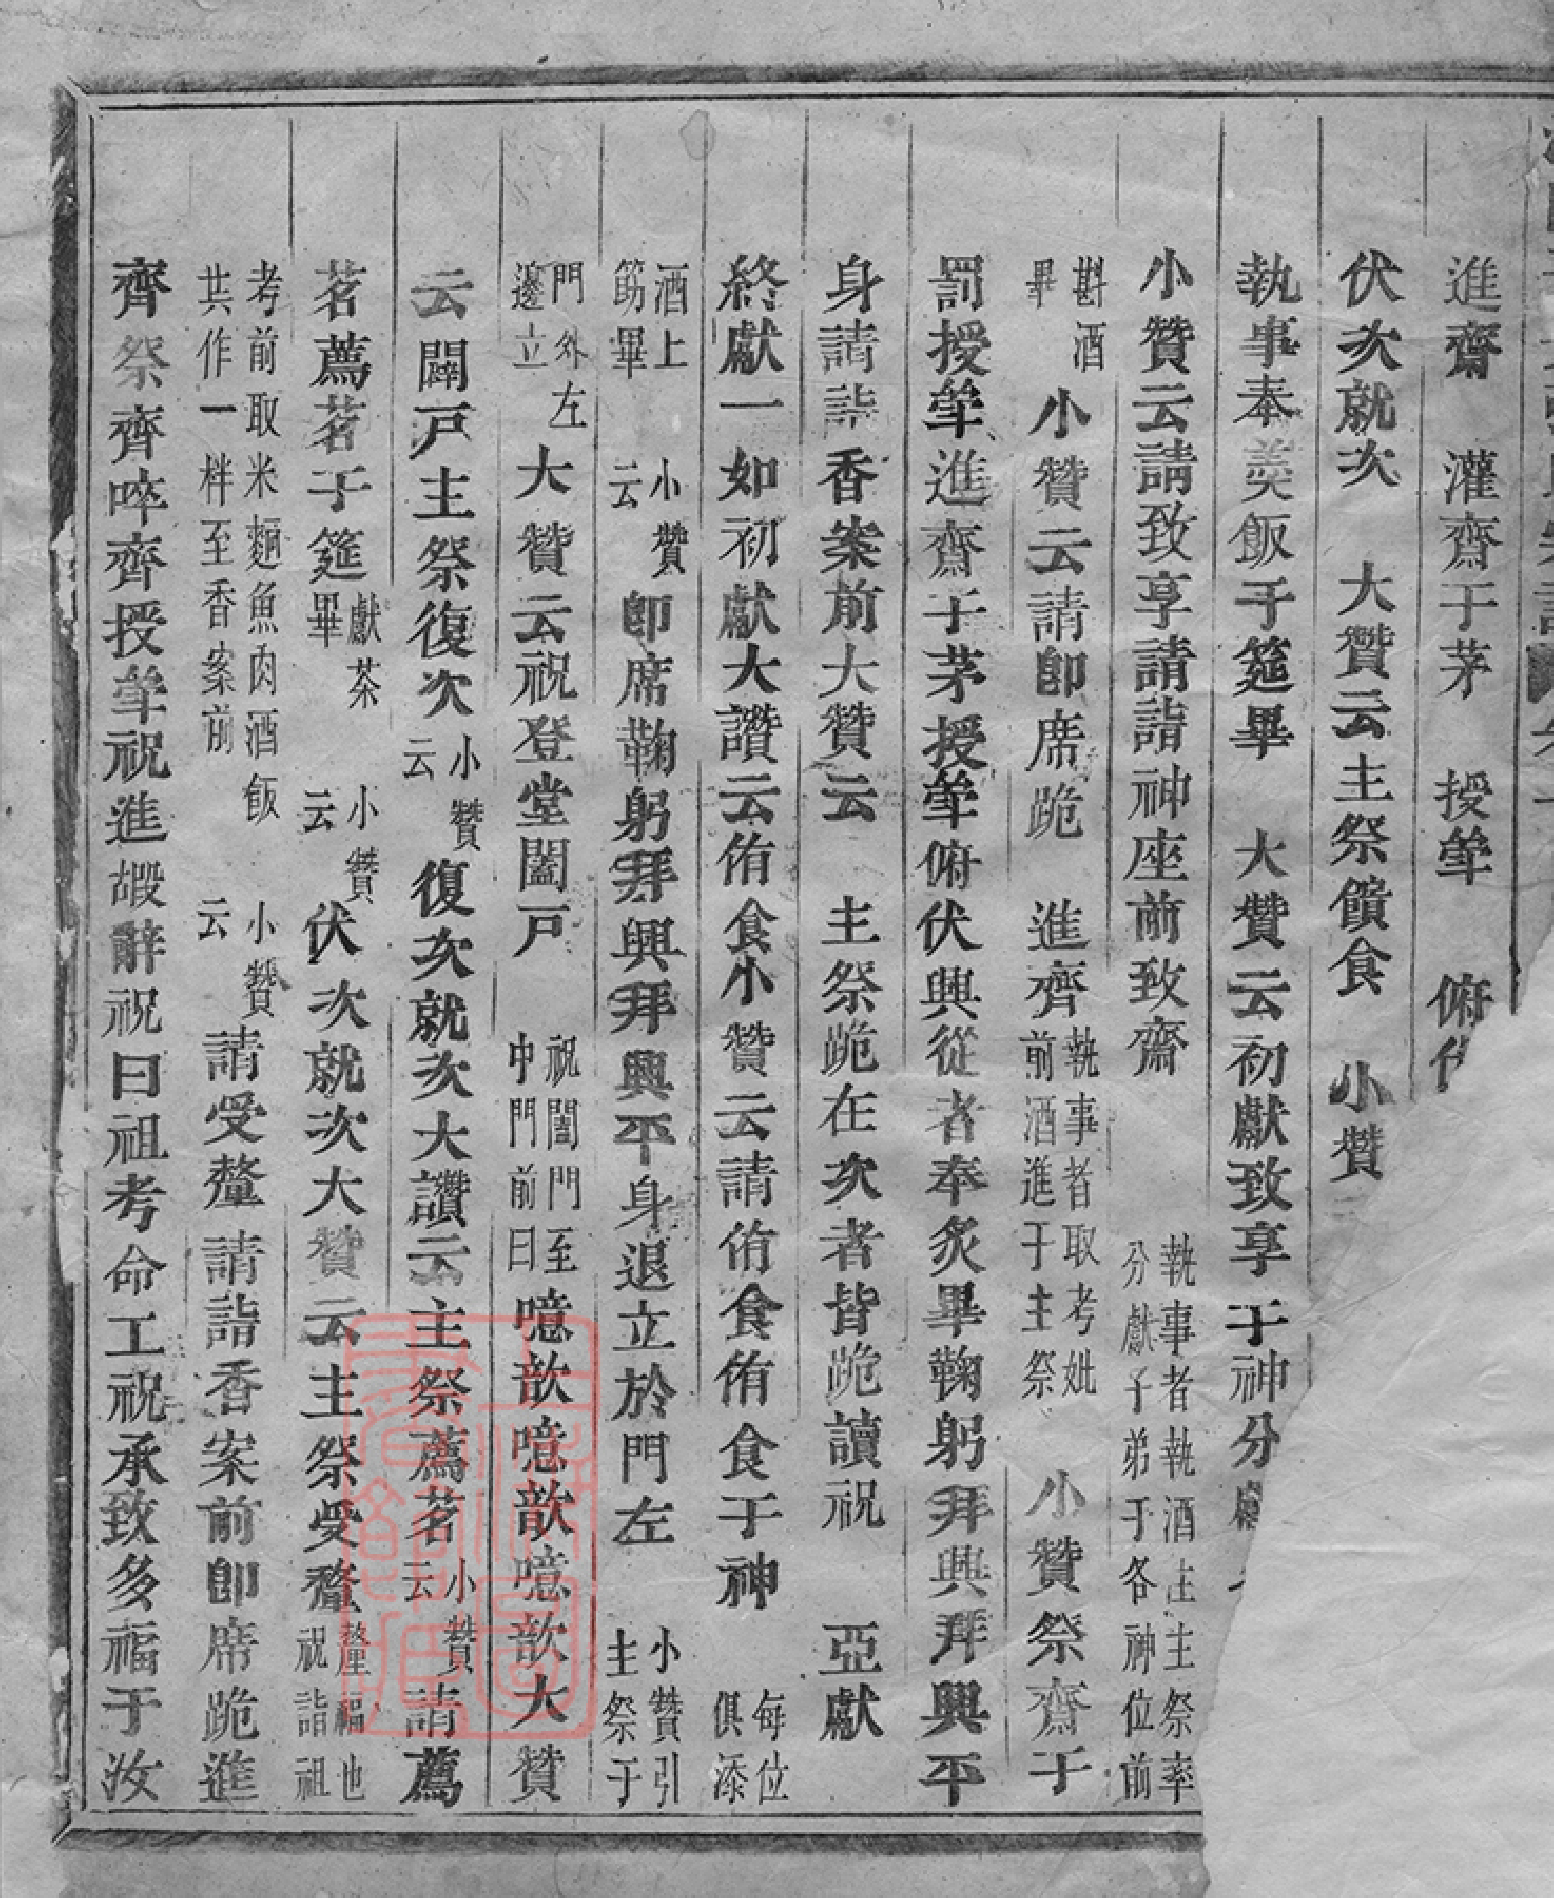 進齋　灌齋于茅　授斝　俯伏
伏次就次　大贊云主祭饋食　小贊
執事奉羮飯于筵畢　大贊云初獻致享于神分獻
小贊云請致享請詣神座前致齋　執事者執酒注主祭率分獻子弟于各神位前
斟酒畢　小贊云請卽席跪　進齊執事者取考妣前酒進于主祭　小贊祭齋于
罰授斝進齋于茅授斝俯伏興從者奉炙畢鞠躬拜興拜興平
身請詣香案前大贊云　主祭跪在次者皆跪讀祝　亞獻
終獻一如初獻大讚云侑食小贊云請侑食侑食于神　每位俱添
酒上筯畢　小贊云　卽席鞠躬拜興拜興平身退立於門左　小贊引主祭于
門外左邊立　大贊云祝登堂闔戸　祝闔門至中門前曰噫歆噫歆噫歆大贊
云闢戸主祭復次小贊云復次次就次大讚云主祭薦茗小贊云請薦
茗薦茗于筵獻茶畢　小贊云伏次就次大贊云主祭受釐釐福也祝詣祖
考前取米麵魚肉酒飯共作一柈至香案前　小贊云請受釐請詣香案前卽席跪進
齊祭齊啐齊授斝祝進嘏辭祝曰祖考命工祝承致多福于汝